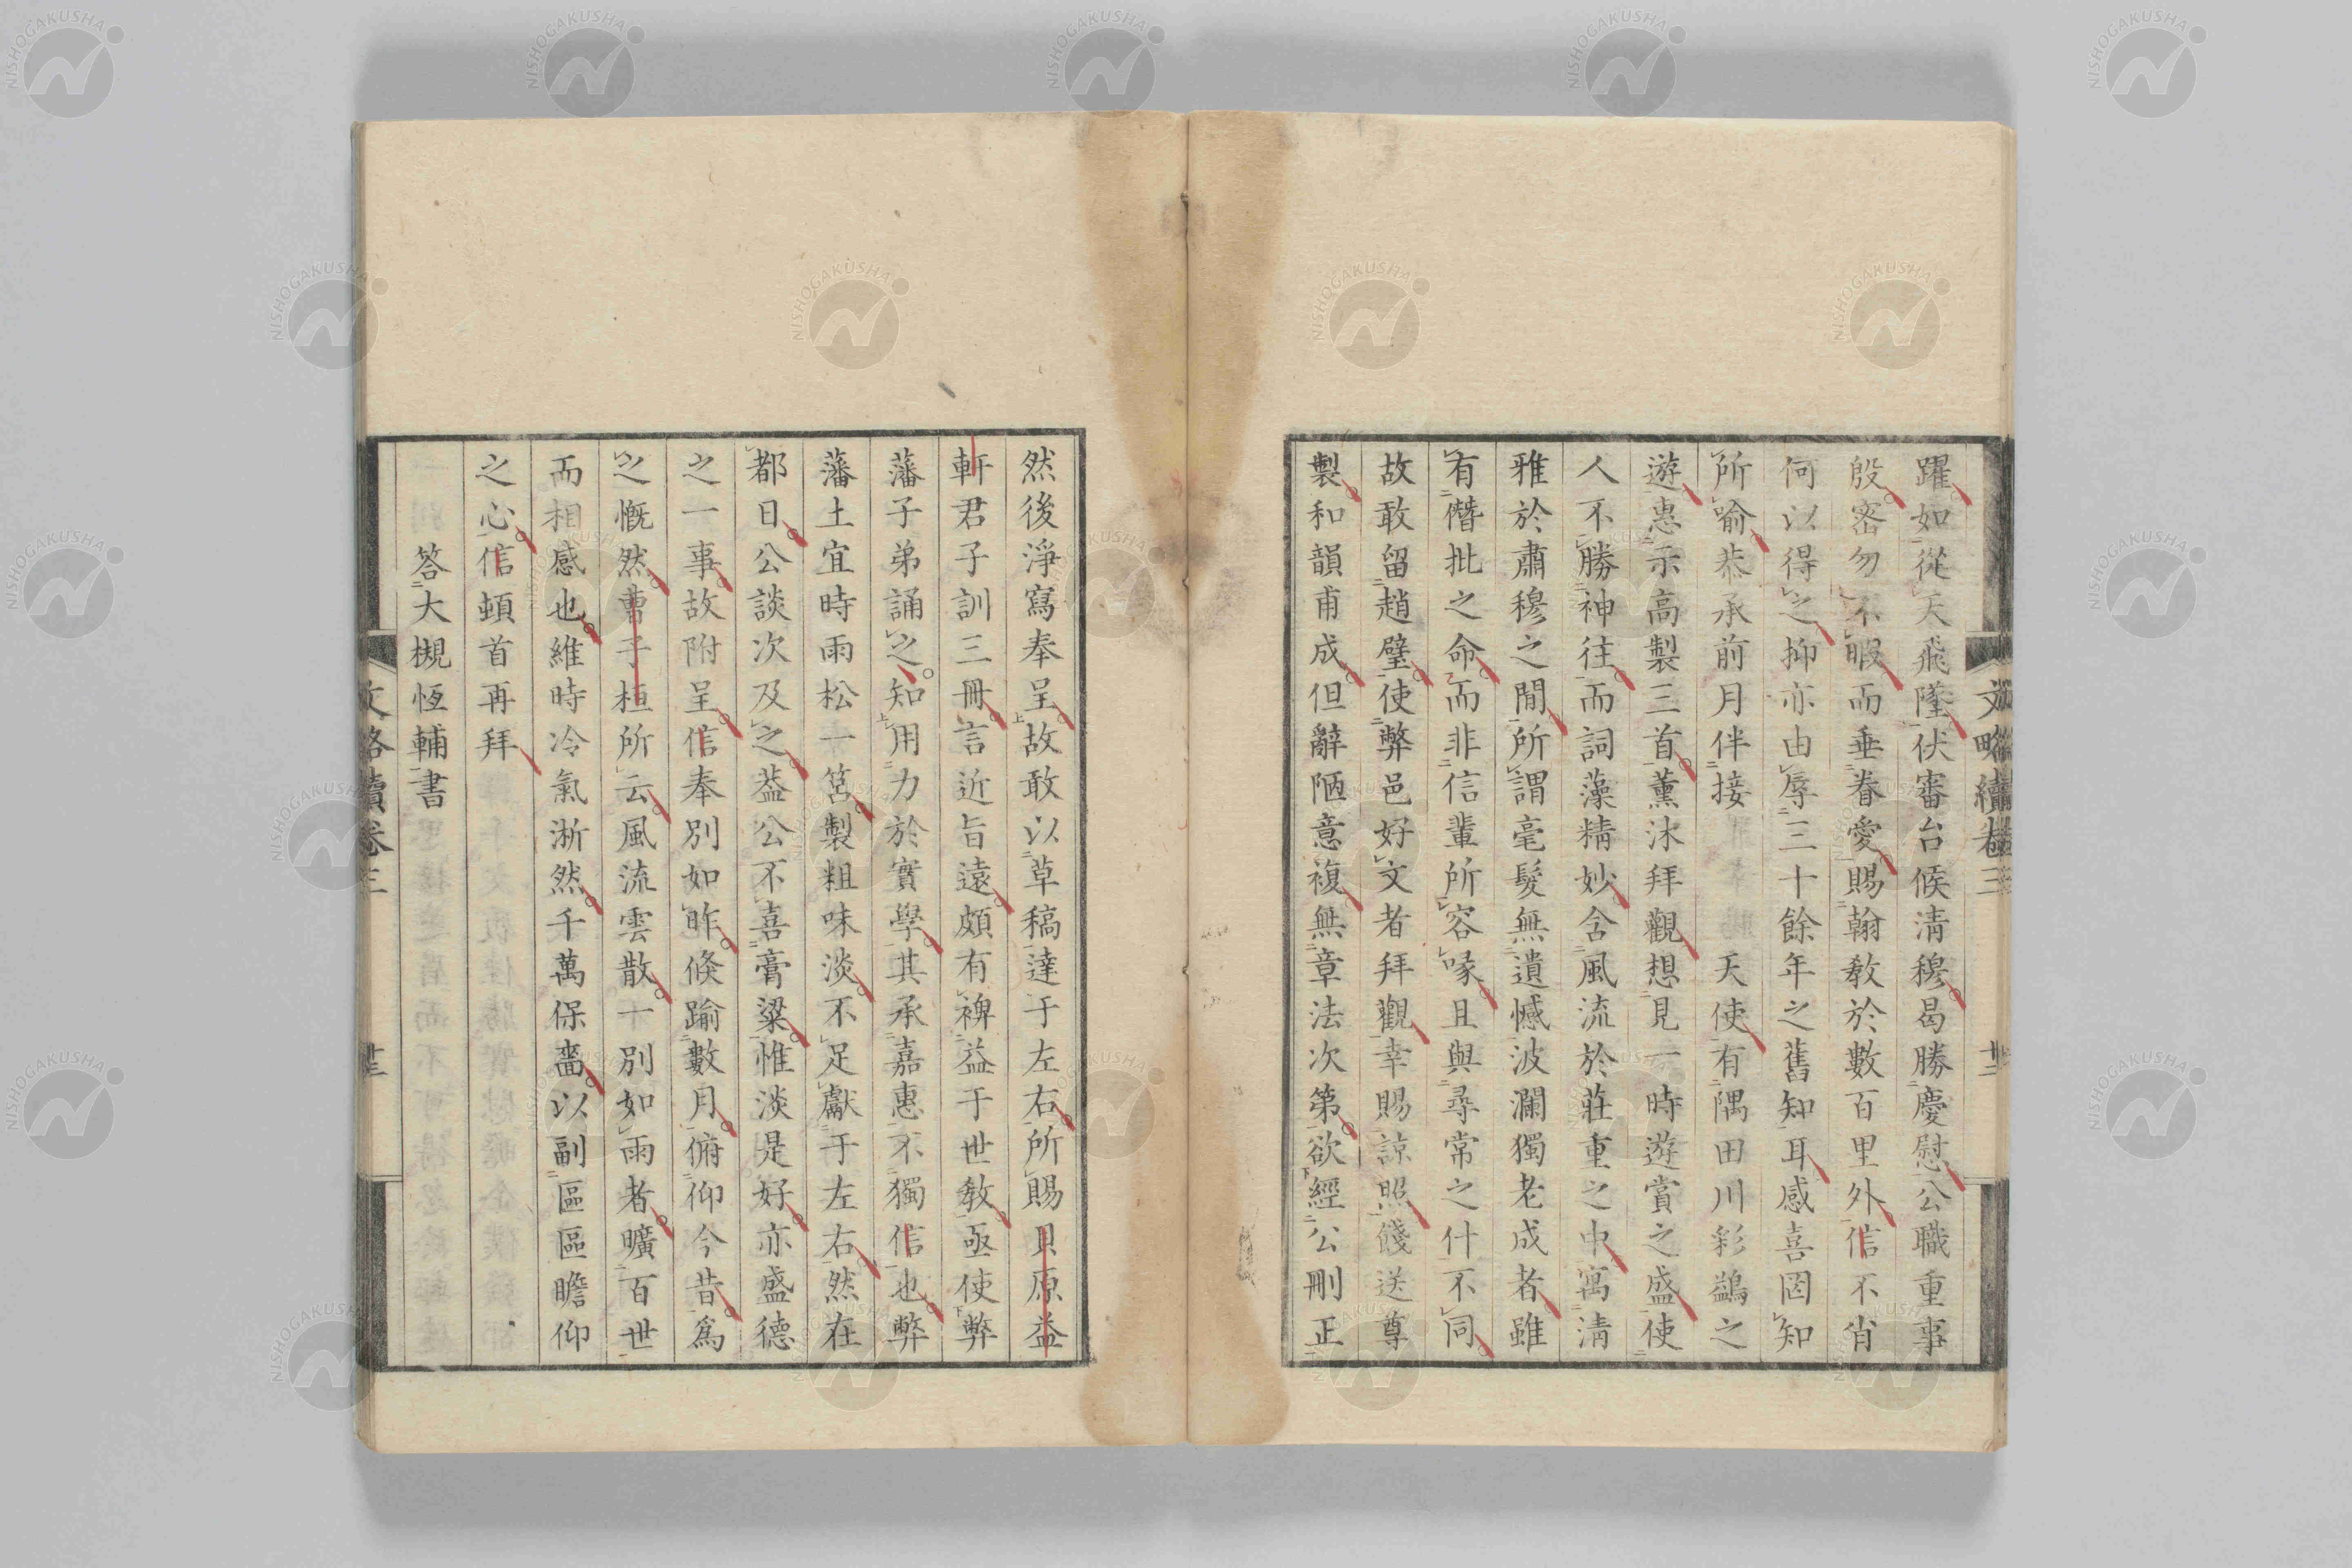 躍如從天飛墜伏審台候淸穆曷勝慶慰公職重事
殷密勿不暇而垂眷愛賜翰敎於數百里外信不肖
何以得之抑亦由辱三十餘年之舊知耳感喜罔知
所喻恭承前月伴接天使有隅田川彩鷁之
遊惠示高製三首薰沐拜觀想見一時遊賞之盛使
人不勝神往而詞藻精妙含風流於莊重之中寓淸
雅於肅穆之間所謂毫髮無遺憾波瀾獨老成者雖
有僭批之命而非信輩所容喙且與尋常之什不同
故敢留趙璧使弊邑好文者拜觀幸賜諒照餞送尊
製和韻甫成但辭陋意複無章法次第欲經公刪正
文略續卷三
然後淨寫奉呈故敢以草稿達于左右所賜貝原益
軒君子訓三冊言近旨遠頗有裨益于世敎亟使弊
藩子弟誦之知用力於實學其承嘉惠不獨信也弊
藩土宜時雨松一筥製粗味淡不足獻于左右然在
都日公談次及之葢公不喜膏粱惟淡是好亦盛德
之一事故附呈信奉別如昨倏踰數月俯仰今昔爲
之慨然曹子桓所云風流雲散一別如雨者曠百世
而相感也維時冷氣淅然千萬保嗇以副區區瞻仰
之心信頓首再拜
答大槻恆輔書
文略續卷三
NISHOGAKUSHA